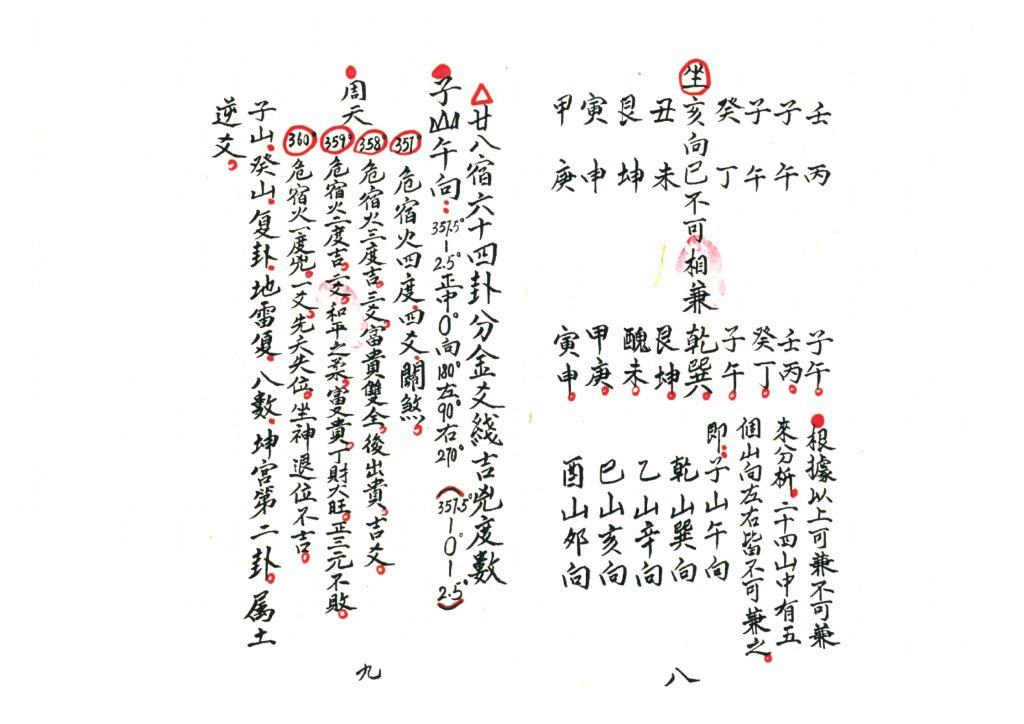 壬 丙
子 午
子 午
癸 丁
坐亥向巳不可相兼
丑 未
艮 坤
寅 申
甲 庚
子午。
壬丙。
癸丁。
子午。
乾巽。
艮坤。
醜未。
甲庚。
寅申。
根據以上可兼不可兼
來分析。二十四山中有五
個山向左右皆不可兼之。
即：子山午向
乾山巽向
乙山辛向
巳山亥向
酉山卯向
八
△廿八宿六十四卦分金爻綫吉兇度數
子山午向：357.5°-2.5°正中0°向180°左90°右270°（357.5°-0°-2.5°）
357° 危宿火四度。四爻。關煞。
358° 危宿火三度吉。三爻。富貴雙全。後出貴。吉爻。
周天
359° 危宿火二度吉。二爻。和平之柔。富貴。丁財大旺。正三元不敗。
360° 危宿火一度兇。一爻。先天失位。坐神退位不吉。
子山。癸山。复卦。地雷復。八數。坤宮第二卦。属土
逆爻。
九